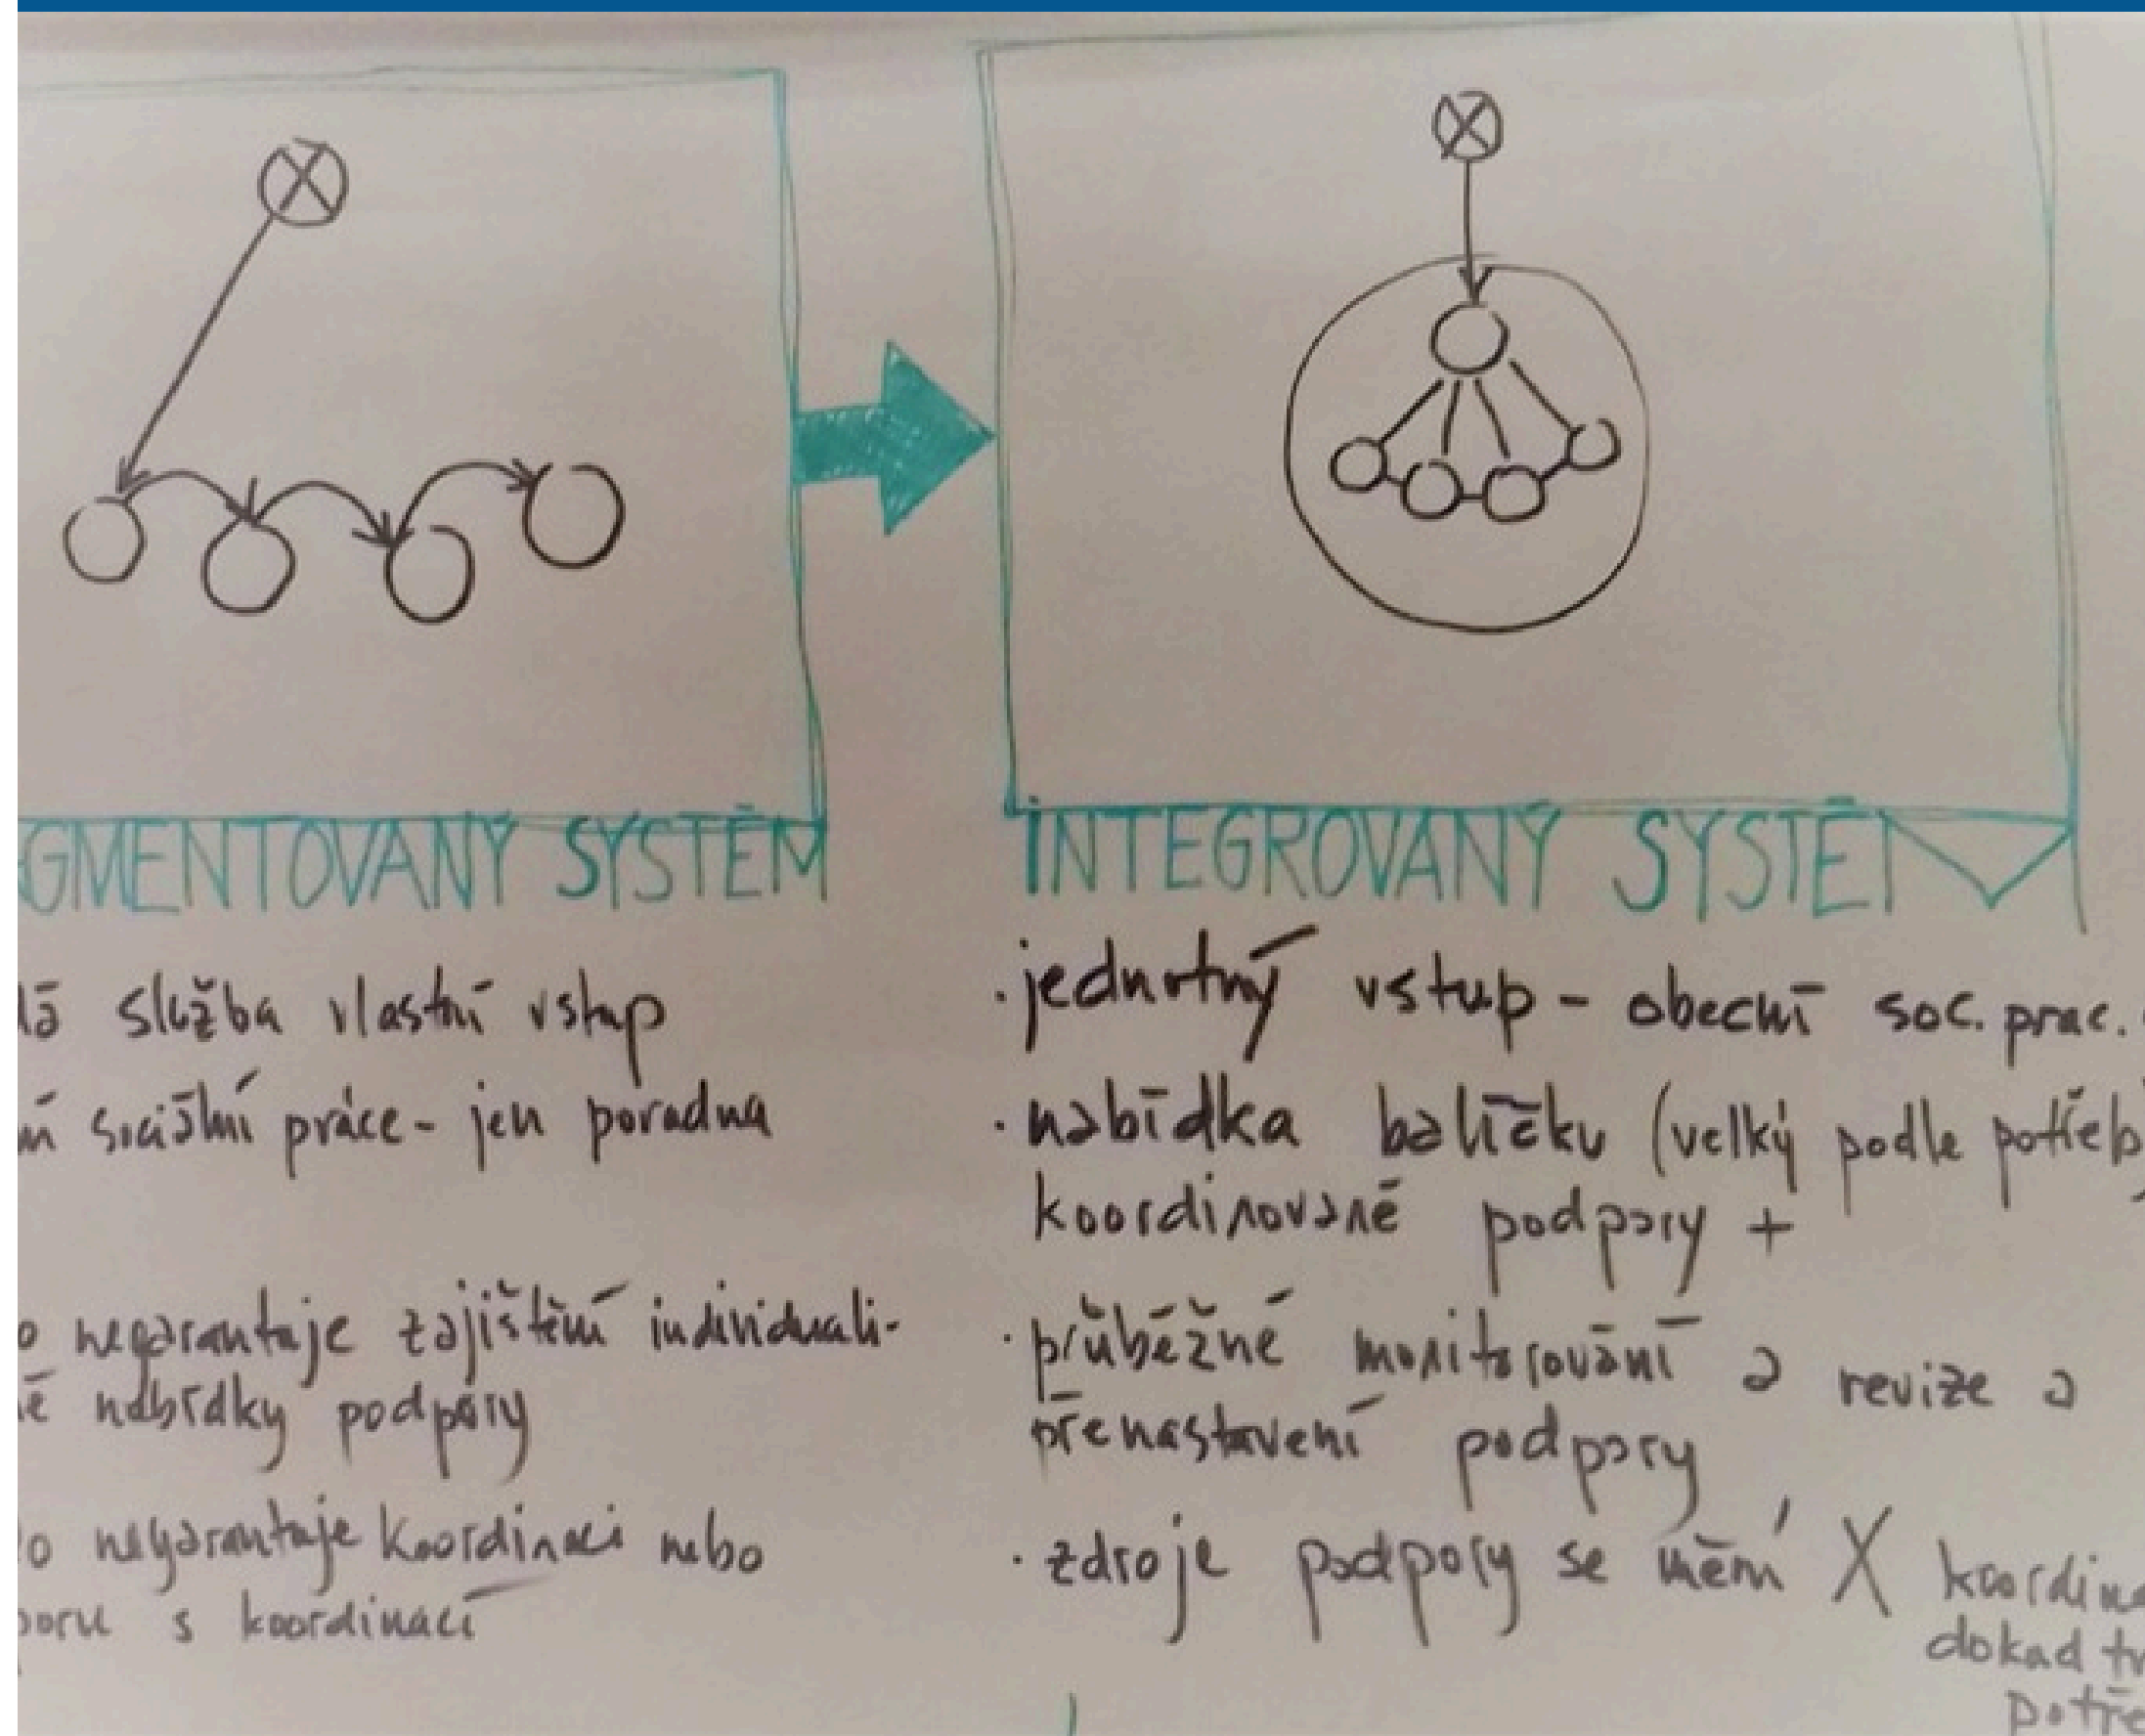 GMENTOVANÝ SYSTÉM
lá služba vlastní vstup
ní sociální práce - jen poradna
o negarantuje zajištění individuali-
é nabídky podpory
o negarantuje koordinaci nebo
poru s koordinací
INTEGROVANÝ SYSTÉM
· jednotný vstup - obecní soc. prac.
· nabídka balíčku (velký podle potřeb)
koordinované podpory +
· průběžné monitorování a revize a
přenastavení podpory
· zdroje podpory se mění X koordina
dokad tr
potře